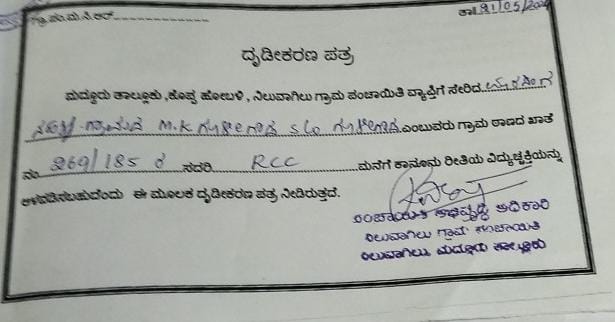 ಗ್ರಾ.ಪಂ.ಮ.ನಿ.ಆರ್
ತಾ|| 21/05/202
ದೃಢೀಕರಣ ಪತ್ರ
ಮದ್ದೂರು ತಾಲ್ಲೂಕು ,ಕೊಪ್ಪ ಹೋಬಳಿ , ನಿಲುವಾಗಿಲು ಗ್ರಾಮ ಪಂಚಾಯಿತಿ ವ್ಯಾಪ್ತಿಗೆ ಸೇರಿದ
ಗ್ರಾಮದ M.K S/o ಎಂಬುವರು ಗ್ರಾಮ ಠಾಣದ ಖಾತೆ
ನಂ 269/185 ರ ಸದರಿ RCC ಮನೆಗೆ ಕಾನೂನು ರೀತಿಯ ವಿದ್ಯುಚ್ಛಕ್ತಿಯನ್ನು
ಅಳವಡಿಸಬಹುದೆಂದು ಈ ಮೂಲಕ ದೃಢೀಕರಣ ಪತ್ರ ನೀಡಿರುತ್ತದೆ.
ಪಂಚಾಯಿತಿ ಅಭಿವೃದ್ಧಿ ಅಧಿಕಾರಿ
ನಿಲುವಾಗಿಲು ಗ್ರಾಮ ಪಂಚಾಯಿತಿ
ನಿಲುವಾಗಿಲು, ಮದ್ದೂರು ತಾಲ್ಲೂಕು